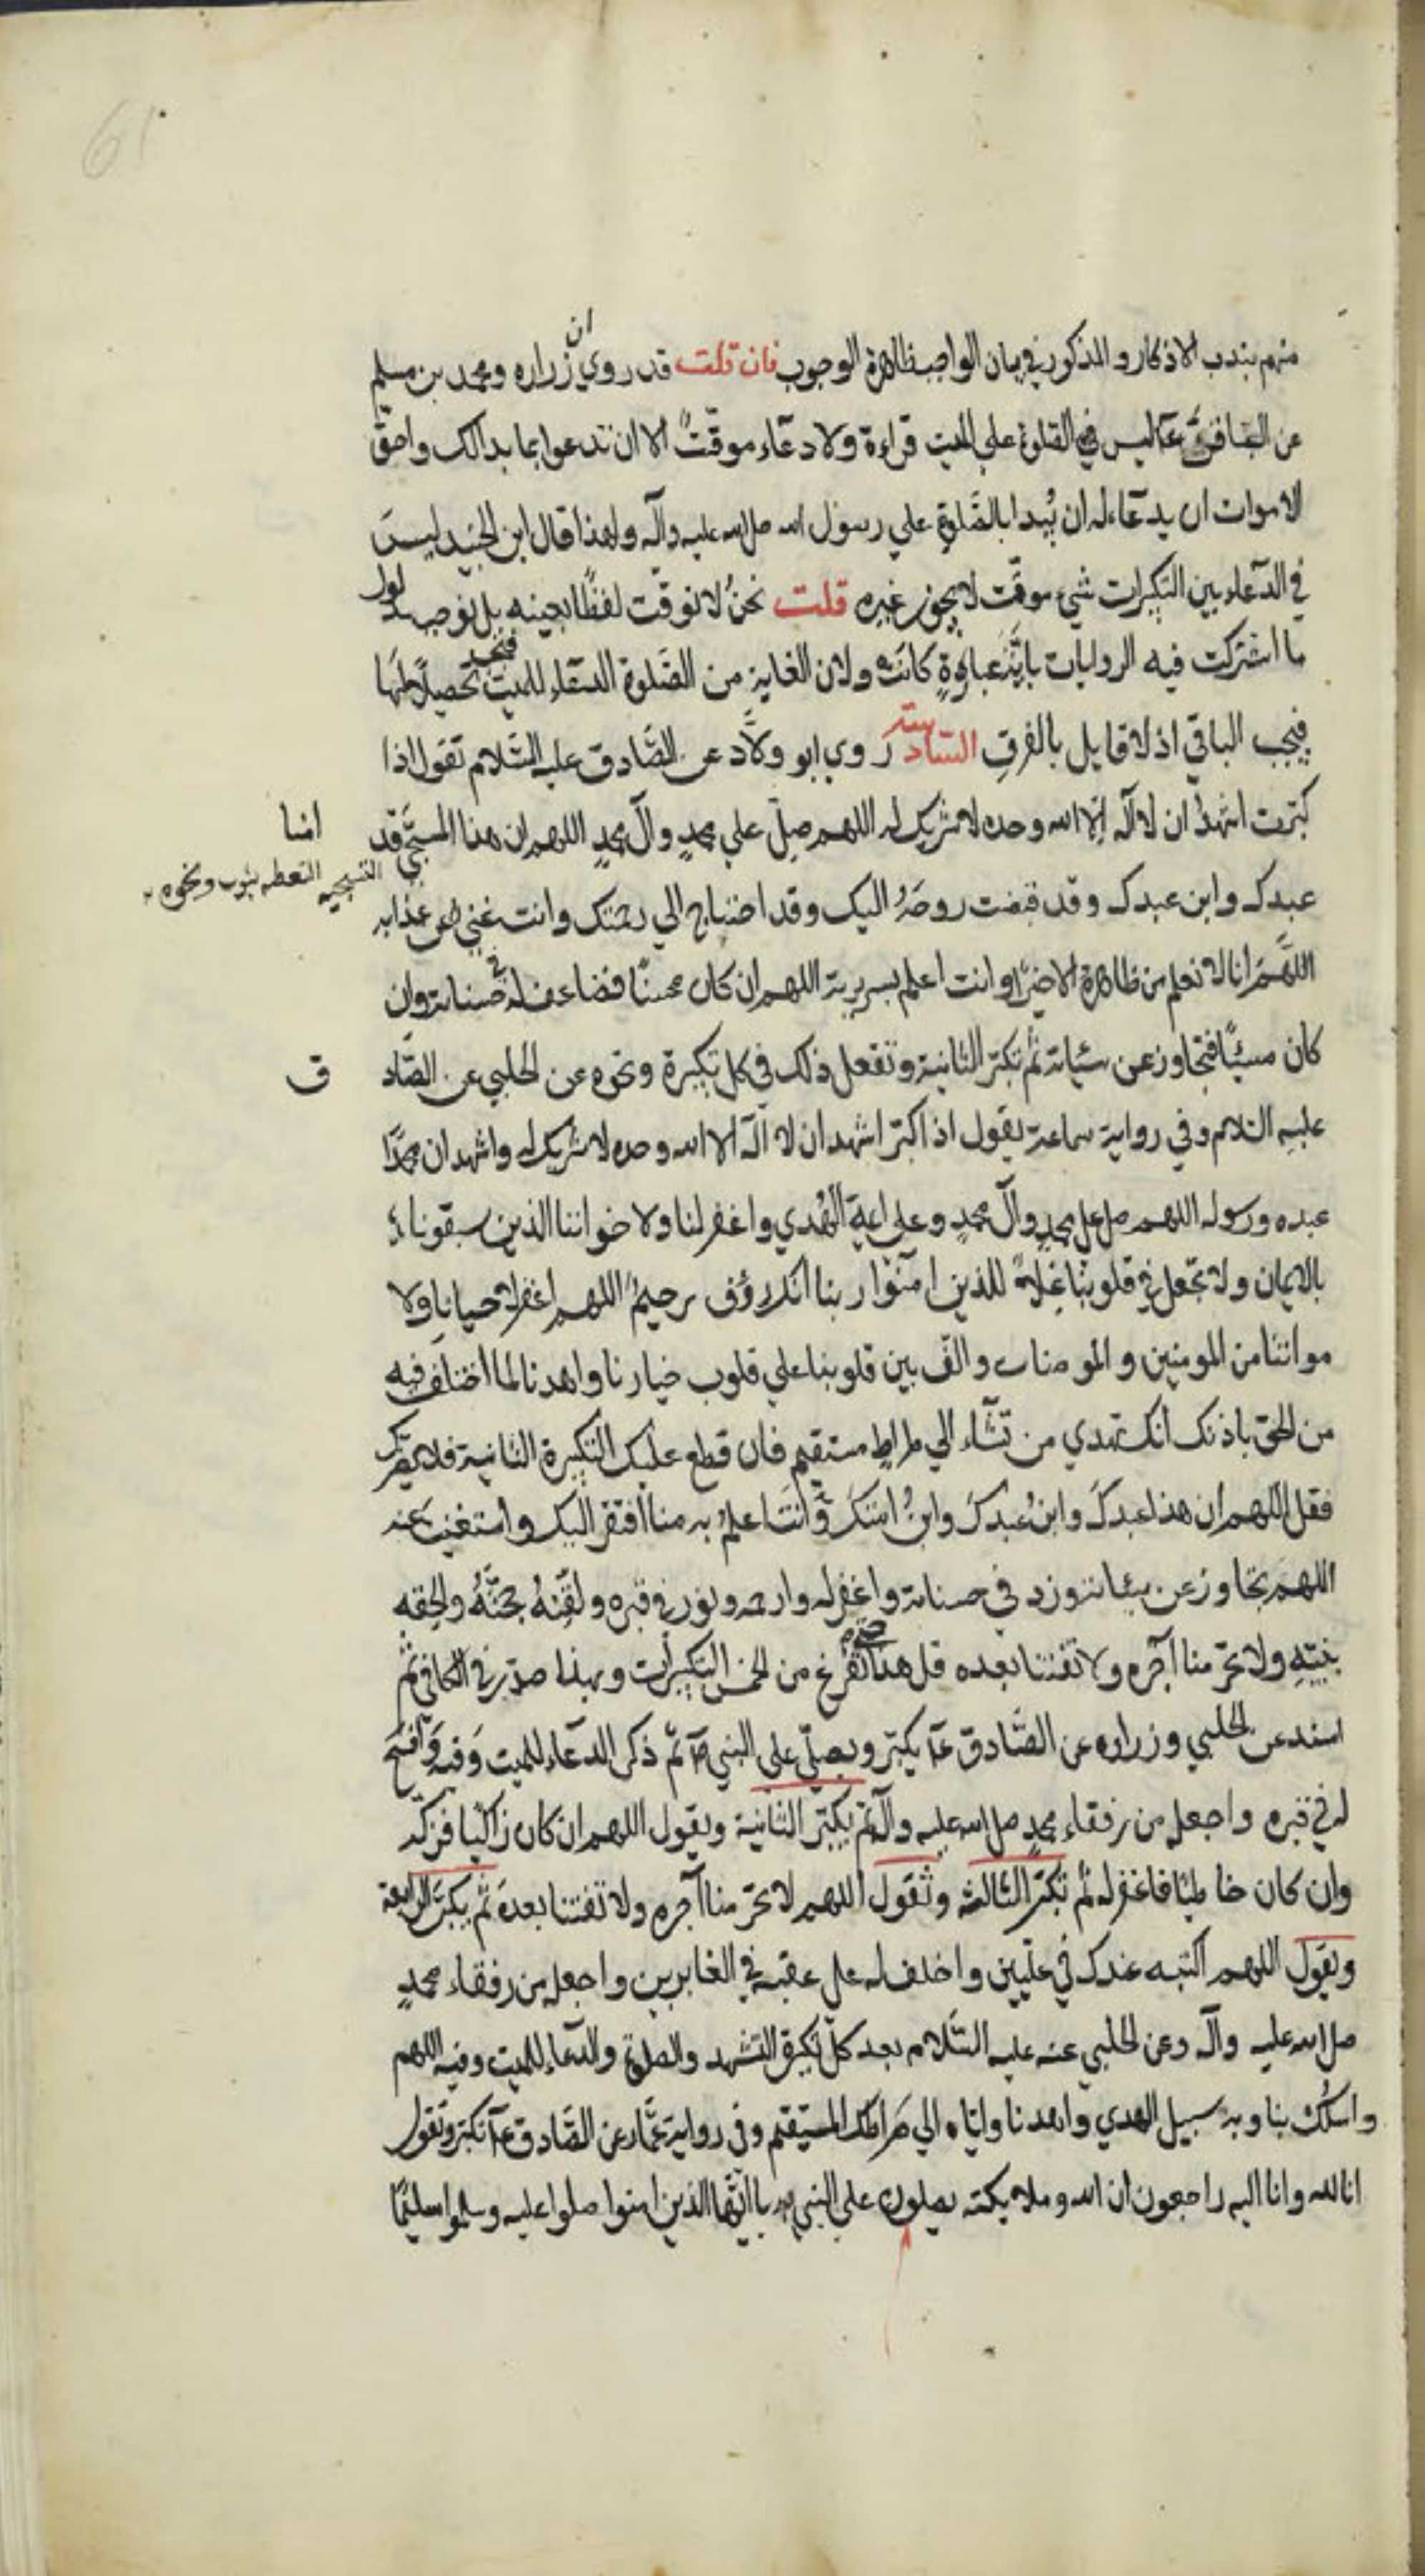 61
منهم بندب الاذكار والمذكور في بيان الواجب ظاهرة الوجوب فان قلت قد روي ان زراره ومحمد بن مسلم
عن الباقر ع ليس في الصلوة علي الميت قراءة ولا دعاء موقت الا ان تدعوا بما بدالك واحق
الاموات ان يدعاء له ان يبدا بالصلوة علي رسول الله صلي الله عليه وآله ولهذا قال ابن الجنيد ليس
في الدعاء بين التكبيرات شيء موقت لا يجوز غيره قلت نحن لا نوقت لفظا بعينه بل نوجب مدلول
ما اشتركت فيه الروايات بايّة عبارةٍ كانت ولان الغاية من الصلوة الدعاء للميت فيجب تحصيلا لها
فيجب الباقي اذ لا قايل بالفرق السادسة روي ابو ولاد عن الصادق عليه السلام تقول اذا
كبرت اشهد ان لا آله الا الله وحده لا شريك له اللهم صل علي محمدٍ وآل محمدٍ اللهم ان هذا المسجّي قدامنا
التسجيه التغطيه بثوب ونحوه
عبدك وابن عبدك وقد قبضت روحه اليك وقد احتاج الي رحمتك وانت غني عن عذابه
اللهم انا لا نعلم من ظاهره الا خيرا وانت اعلم بسريرته اللهم ان كان محسنا فضاعف له في حسناته وان
كان مسيئا فتجاوز عن سيئاته ثم تكبر الثانية وتفعل ذلك في كل تكبيرة ونحوه عن الحلبي عن الصادق
عليه السلام وفي رواية سماعة يقول اذا كبر اشهد ان لا آله الا الله وحده لا شريك له واشهد ان محمدا
عبده ورسوله اللهم صل علي محمدٍ وآل محمدٍ وعلي ائمة الهدي واغفر لنا ولاخواننا الذين سبقونا
بالايمان ولا تجعل في قلوبنا غلا للذين امنوا ربنا انك رؤف رحيم اللهم اغفر لاحيانا ولا
مواتنا من المومنين والمومنات والف بين قلوبنا علي قلوب خيارنا واهدنا لما اختلف فيه
من الحق باذنك انك تهدي من تشاء الي صراطٍ مستقيم فان قطع عليك التكبيرة الثانية فلا يضرك
فقل اللهم ان هذا عبدك وابن عبدك وابن امتك وانت اعلم به منا افتقر اليك واستغنيت عنه
اللهم تجاوز عن سيئاته وزد في حسناته واغفر له وارحمه ونور في قبره ولقنه حجته والحقه
بنبيّه ولا تحرمنا اجره ولا تفتنا بعده قل هذا حتي تفرغ من الخمس التكبيرات وبهذا صدّر في الكافي ثم
اسند عن الحلبي وزراره عن الصادق ع يكبر ويصلي علي النبي ص ثم ذكر الدعاء للميت وفيه وافسح
له في قبره واجعله من رفقاء محمد صلي الله عليه وآله ثم يكبر الثانية ويقول اللهم ان كان زاكيا فزكه
وان كان خاطيا فاغفر له ثم تكبر الثالثه وتقول اللهم لا تحرمنا اجره ولا تفتنا بعده ثم يكبر الرابعة
ويقول اللهم اكتبه عندك في علّيين واخلف له علي عقبه في الغابرين واجعله من رفقاء محمدٍ
صلي الله عليه وآله وعن الحلبي عنه عليه السلام بعد كل تكبيرة التشهد والصلوة والدعاء للميت وفيه اللهم
واسلك بنا وبه سبيل الهدي واهدنا واياه الي صراطك المستقيم وفي رواية عمار عن الصادق ع تكبر وتقول
انا لله وانا اليه راجعون ان الله وملايكته يصلون علي النبي يا ايها الذين امنوا صلوا عليه وسلموا تسليما